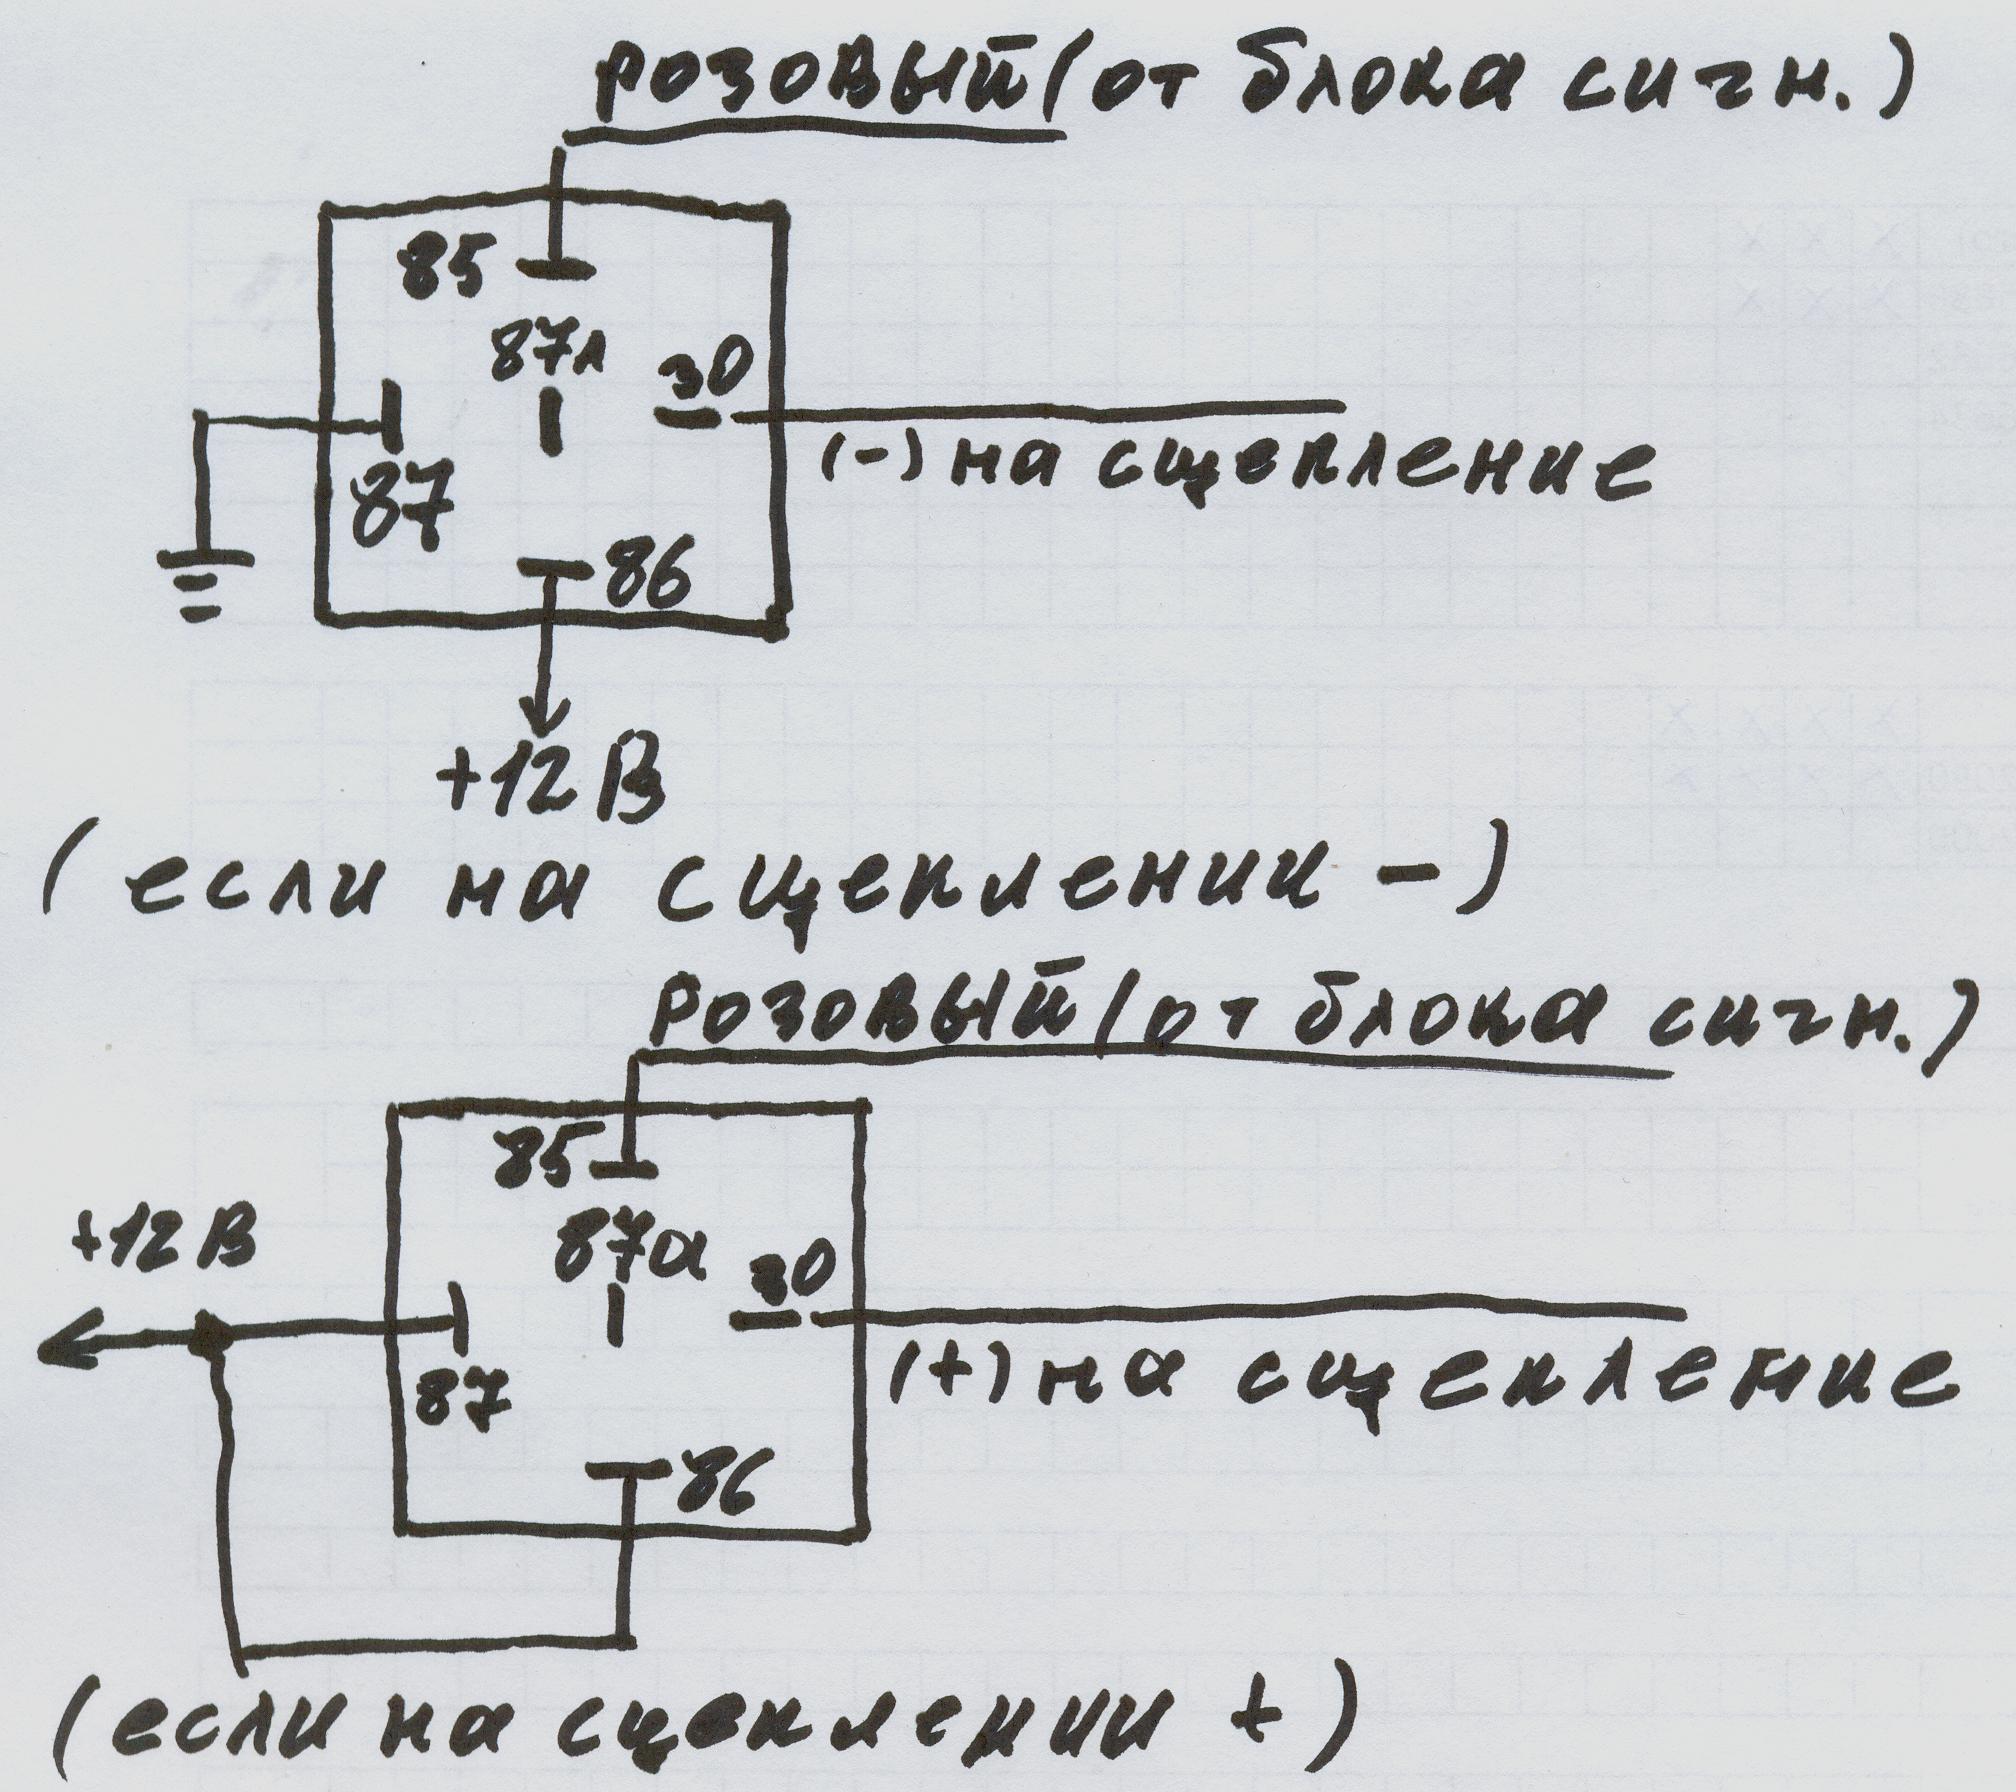 розовый (от блока сигн.)
85
87а
30
87
(-) на сцепление
86
+12 В
(если на сцеплении -)
розовый (от блока сигн.)
85
+12 В
87а
30
87
(+) на сцепление
86
(если на сцеплении +)